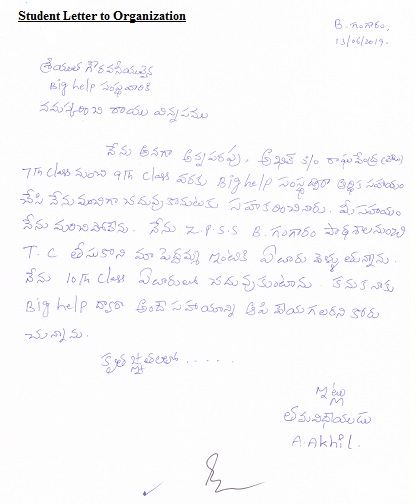 Student Letter to Organization
B. గంగారం,
13/06/2019.
శ్రీయుత గౌరవనీయులైన
Big help సంస్థ వారికి
నమస్కరించి రాయు విన్నపము
నేను అనగా అన్నపరపు. అఖిల్ S/o రాఘవేంద్ర
7Th Class నుంచి 9Th Class వరకు Big help సంస్థ ద్వారా ఆర్థిక సహాయం
చేసి నేను మంచిగా చదువుకొనుటకు సహకరించినారు. మీ సహాయం
నేను మరిచిపోలేను. నేను Z.P.S.S B. గంగారం పాఠశాల నుంచి
T.C తీసుకొని మా పెద్దమ్మ ఇంటికి ఏటూరు వెళ్ళుతున్నాను.
నేను 10Th Class ఏటూరులో చదువుకుంటాను. కనుక నాకు
Big help ద్వారా అందే సహాయాన్ని ఆపి వేయగలరని కోరు
చున్నాను.
కృతజ్ఞతలతో.....
ఇట్లు
తమ విధేయుడు
A. Akhil.